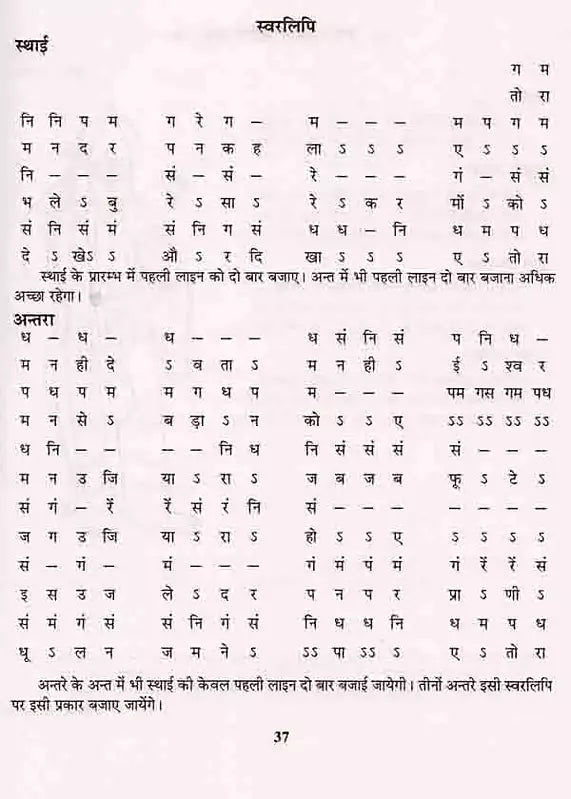 स्वरलिपि
स्थाई
ग म
तो रा
नि नि प म ग रे ग – म – – – म प ग म
म न द र प न क ह ला ऽ ऽ ऽ ए ऽ ऽ ऽ
नि – – – सं – सं – रे – – – गं – सं सं
भ ले ऽ बु रे ऽ सा ऽ रे ऽ क र मों ऽ को ऽ
सं नि सं मं सं नि ग सं ध ध – नि ध म प ध
दे ऽ खेऽ ऽ औ ऽ र दि खा ऽ ऽ ऽ ए ऽ तो रा
स्थाई के प्रारम्भ में पहली लाइन को दो बार बजाए। अन्त में भी पहली लाइन दो बार बजाना अधिक
अच्छा रहेगा।
अन्तरा
ध – ध – ध – – – ध सं नि सं प नि ध –
म न ही दे ऽ व ता ऽ म न ही ऽ ई ऽ श्व र
प ध प म म ग ध प म – – – पम गस गम पध
म न से ऽ ब ड़ा ऽ न को ऽ ऽ ए ऽऽ ऽऽ ऽऽ ऽऽ
ध नि – – – – नि ध नि सं सं सं सं – – –
म न उ जि या ऽ रा ऽ ज ब ज ब फू ऽ टे ऽ
सं गं – रें रें सं रं नि सं – – – – – – –
ज ग उ जि या ऽ रा ऽ हो ऽ ऽ ए ऽ ऽ ऽ ऽ
सं – गं – मं – – – गं मं पं मं गं रें रें सं
इ स उ ज ले ऽ द र प न प र प्रा ऽ णी ऽ
सं मं गं सं सं नि गं सं नि ध ध नि ध म प ध
धू ऽ ल न ज म ने ऽ ऽऽ पा ऽऽ ऽ ए ऽ तो रा
अन्तरे के अन्त में भी स्थाई की केवल पहली लाइन दो बार बजाई जायेगी। तीनों अन्तरे इसी स्वरलिपि
पर इसी प्रकार बजाए जायेंगे।
37